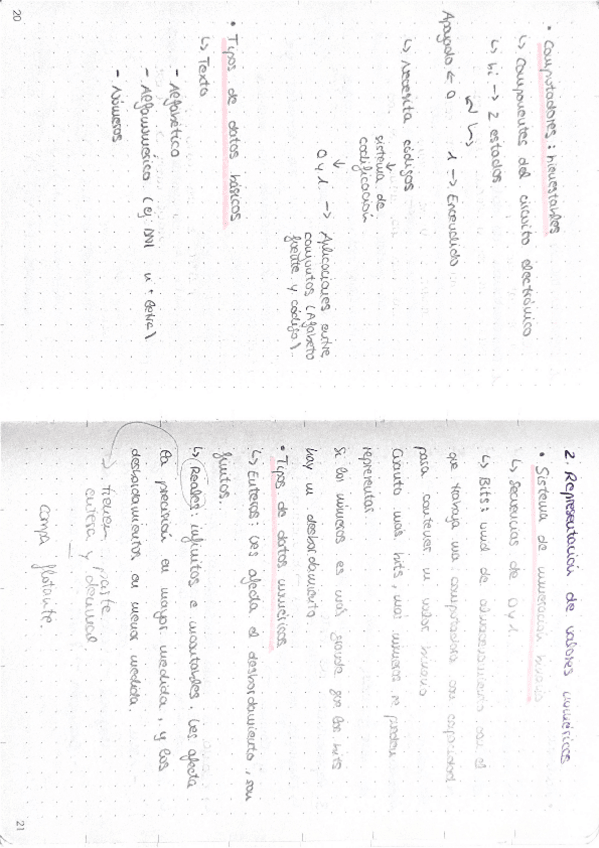 20
• Computadores: biestables
↳ Componentes del circuito electrónico
↳ bi → 2 estados
Apagado ← 0 1 → Encendido
↳ Necesita códigos
sistema de
codificación
0 y 1 → Aplicaciones entre
conjuntos (Alfabeto
fuente y código).
• Tipos de datos básicos
↳ Texto
- Alfabético
- Alfanumérico (ej DNI nº letra)
- Números
2. Representación de valores numéricos
• Sistema de numeración binario
↳ Secuencias de 0 y 1
↳ Bits: unid de almacenamiento con el
que trabaja una computadora con capacidad
para contener un valor binario
Cuanto más bits, más números se pueden
representar
si los números es más grande que los bits
hay un desbordamiento
• Tipos de datos numéricos
↳ Enteros: les afecta el desbordamiento, son
finitos.
↳ Reales: infinitos e incontables. les afecta
la precisión en mayor medida, y los
desbordamientos en menor medida.
→ tienen parte
entera y decimal
coma flotante.
21